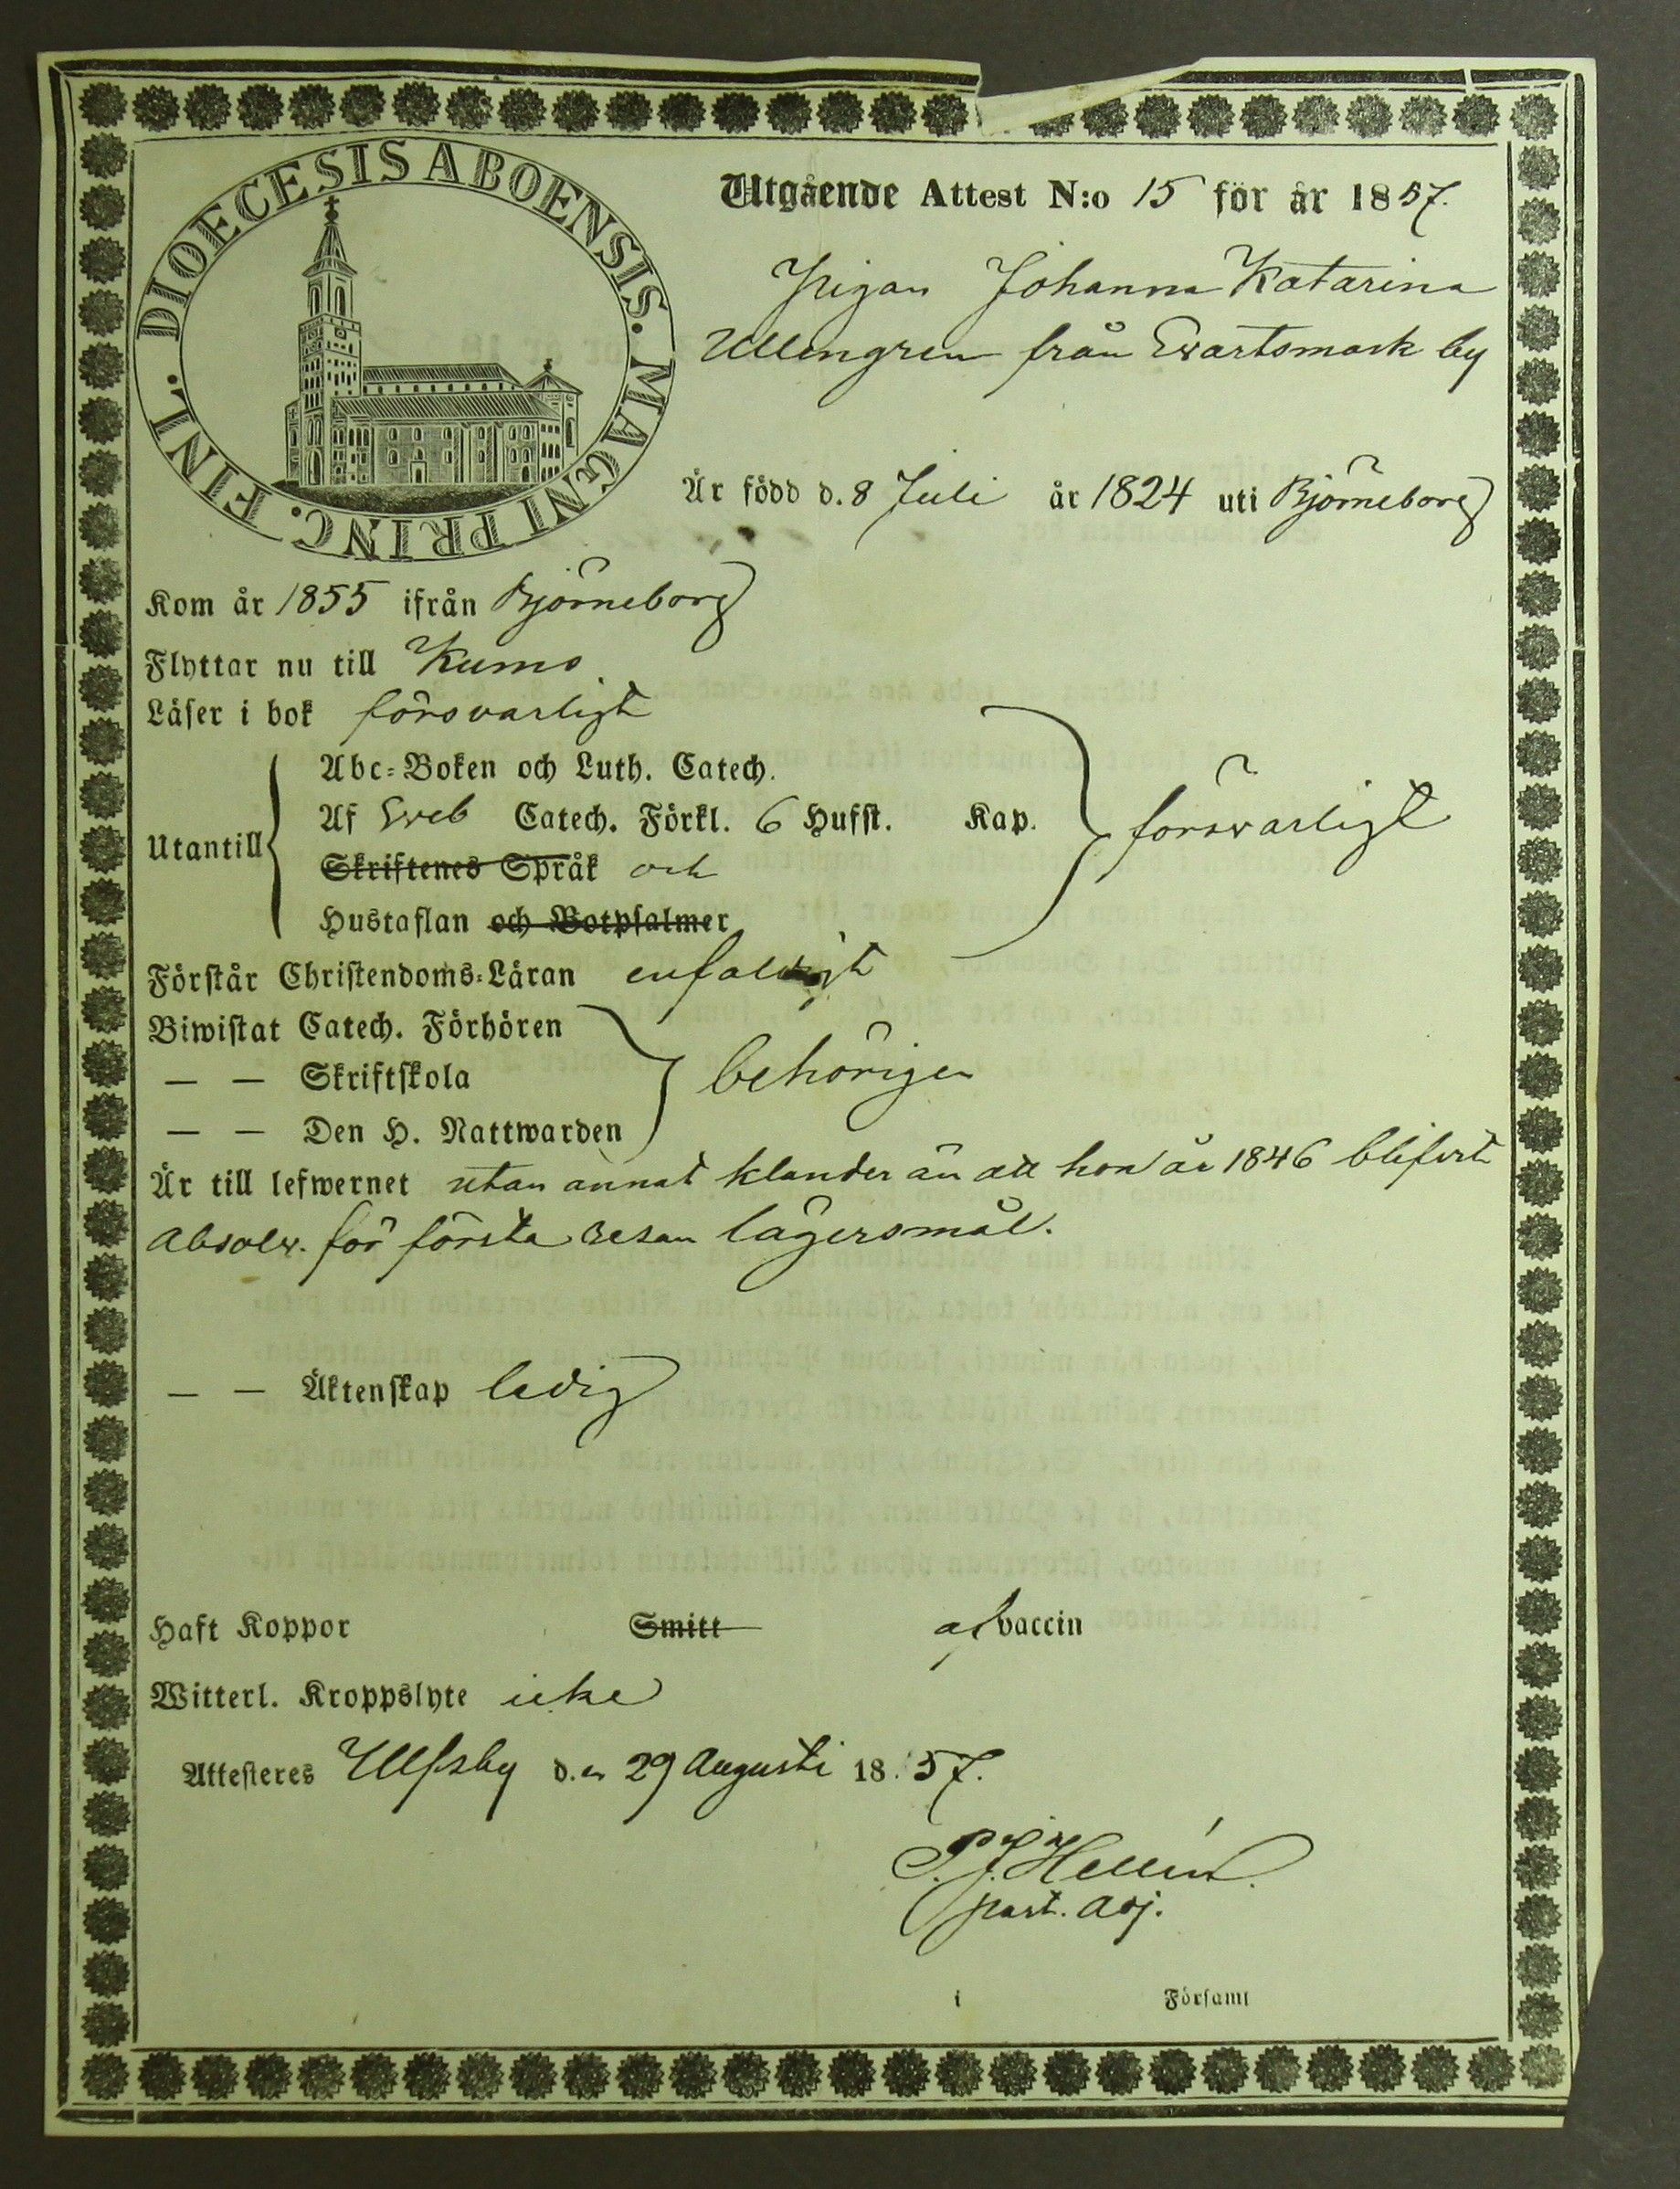 DIOECESIS ABOENSIS. MAGNI PRINC. FINL.
Utgående Attest N:o 15 för år 1857.
Pigan Johanna Katarina
Ullengren från Evartsmark by
Är född d. 8 Juli år 1824 uti Björneborg
Kom år 1855 ifrån Björneborg
Flyttar nu till Kumo
Läser i bok försvarligt
Abc-Boken och Luth. Catech.
Af Sveb Catech. Förkl. 6 Hufst. Kap.
Utantill försvarligt
Skriftenes Språk och
Hustaflan och Botpsalmer
Förstår Christendoms-Läran enfaldigt
Biwistat Catech. Förhören
— — Skriftskola behörigen
— — Den H. Nattwarden
Är till lefwernet utan annat klander än att hon år 1846 blifvit
absolv. för första resan lägersmål.
— — Äktenskap ledig
Haft Koppor Smitt af vaccin
Witterl. Kroppslyte icke
Attesteres Ulfsby d. en 29 Augusti 1857.
P. J. Hellén.
past. adj.
i Församl